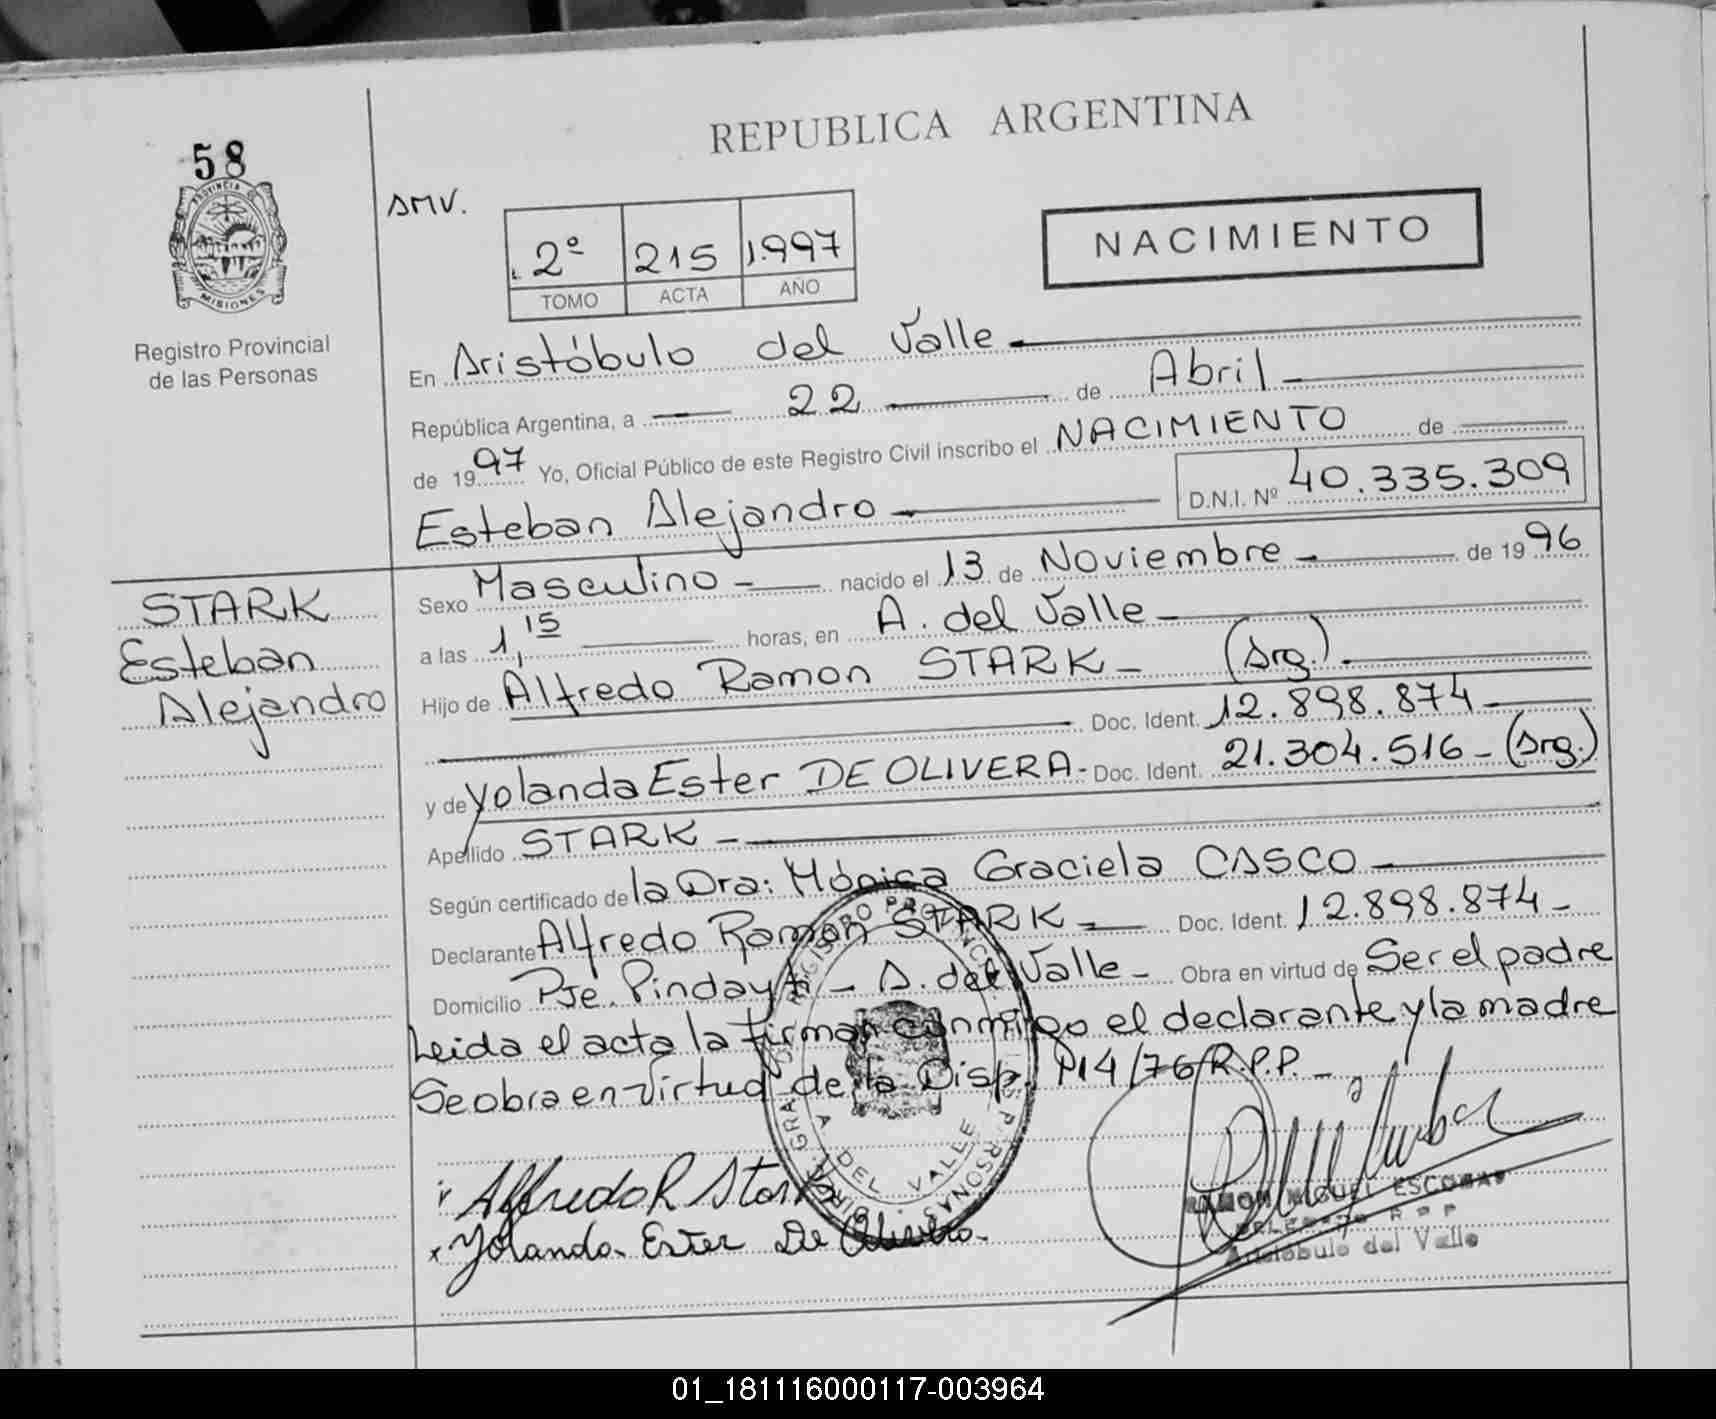 REPUBLICA ARGENTINA
58
PROVINCIA DE
MISIONES
Registro Provincial
de las Personas
AMV.
2º 215 1.997
TOMO ACTA AÑO
NACIMIENTO
En Aristóbulo del Valle
República Argentina, a 22 de Abril
de 1997 Yo, Oficial Público de este Registro Civil inscribo el NACIMIENTO de
Esteban Alejandro D.N.I. Nº 40.335.309
STARK
Esteban
Alejandro
Sexo Masculino nacido el 13 de Noviembre de 1996
a las 1,15 horas, en A. del Valle
Hijo de Alfredo Ramon STARK - (Arg.)
Doc. Ident. 12.898.874
y de Yolanda Ester DE OLIVERA - Doc. Ident. 21.304.516 - (Arg.)
Apellido STARK
Según certificado de la Dra: Mónica Graciela CASCO
Declarante Alfredo Ramon STARK Doc. Ident. 12.898.874 -
Domicilio Pje. Pindayti - A. del Valle - Obra en virtud de Ser el padre
Leida el acta la firman conmigo el declarante y la madre
Se obra en virtud de la Disp. Nº 14/76 R.P.P. -
Alfredo R Stark
x Yolanda Ester De Olivera
RAMON MIGUEL ESCOBAR
DELEGADO R P P
Aristóbulo del Valle
A DEL VALLE
01_181116000117-003964